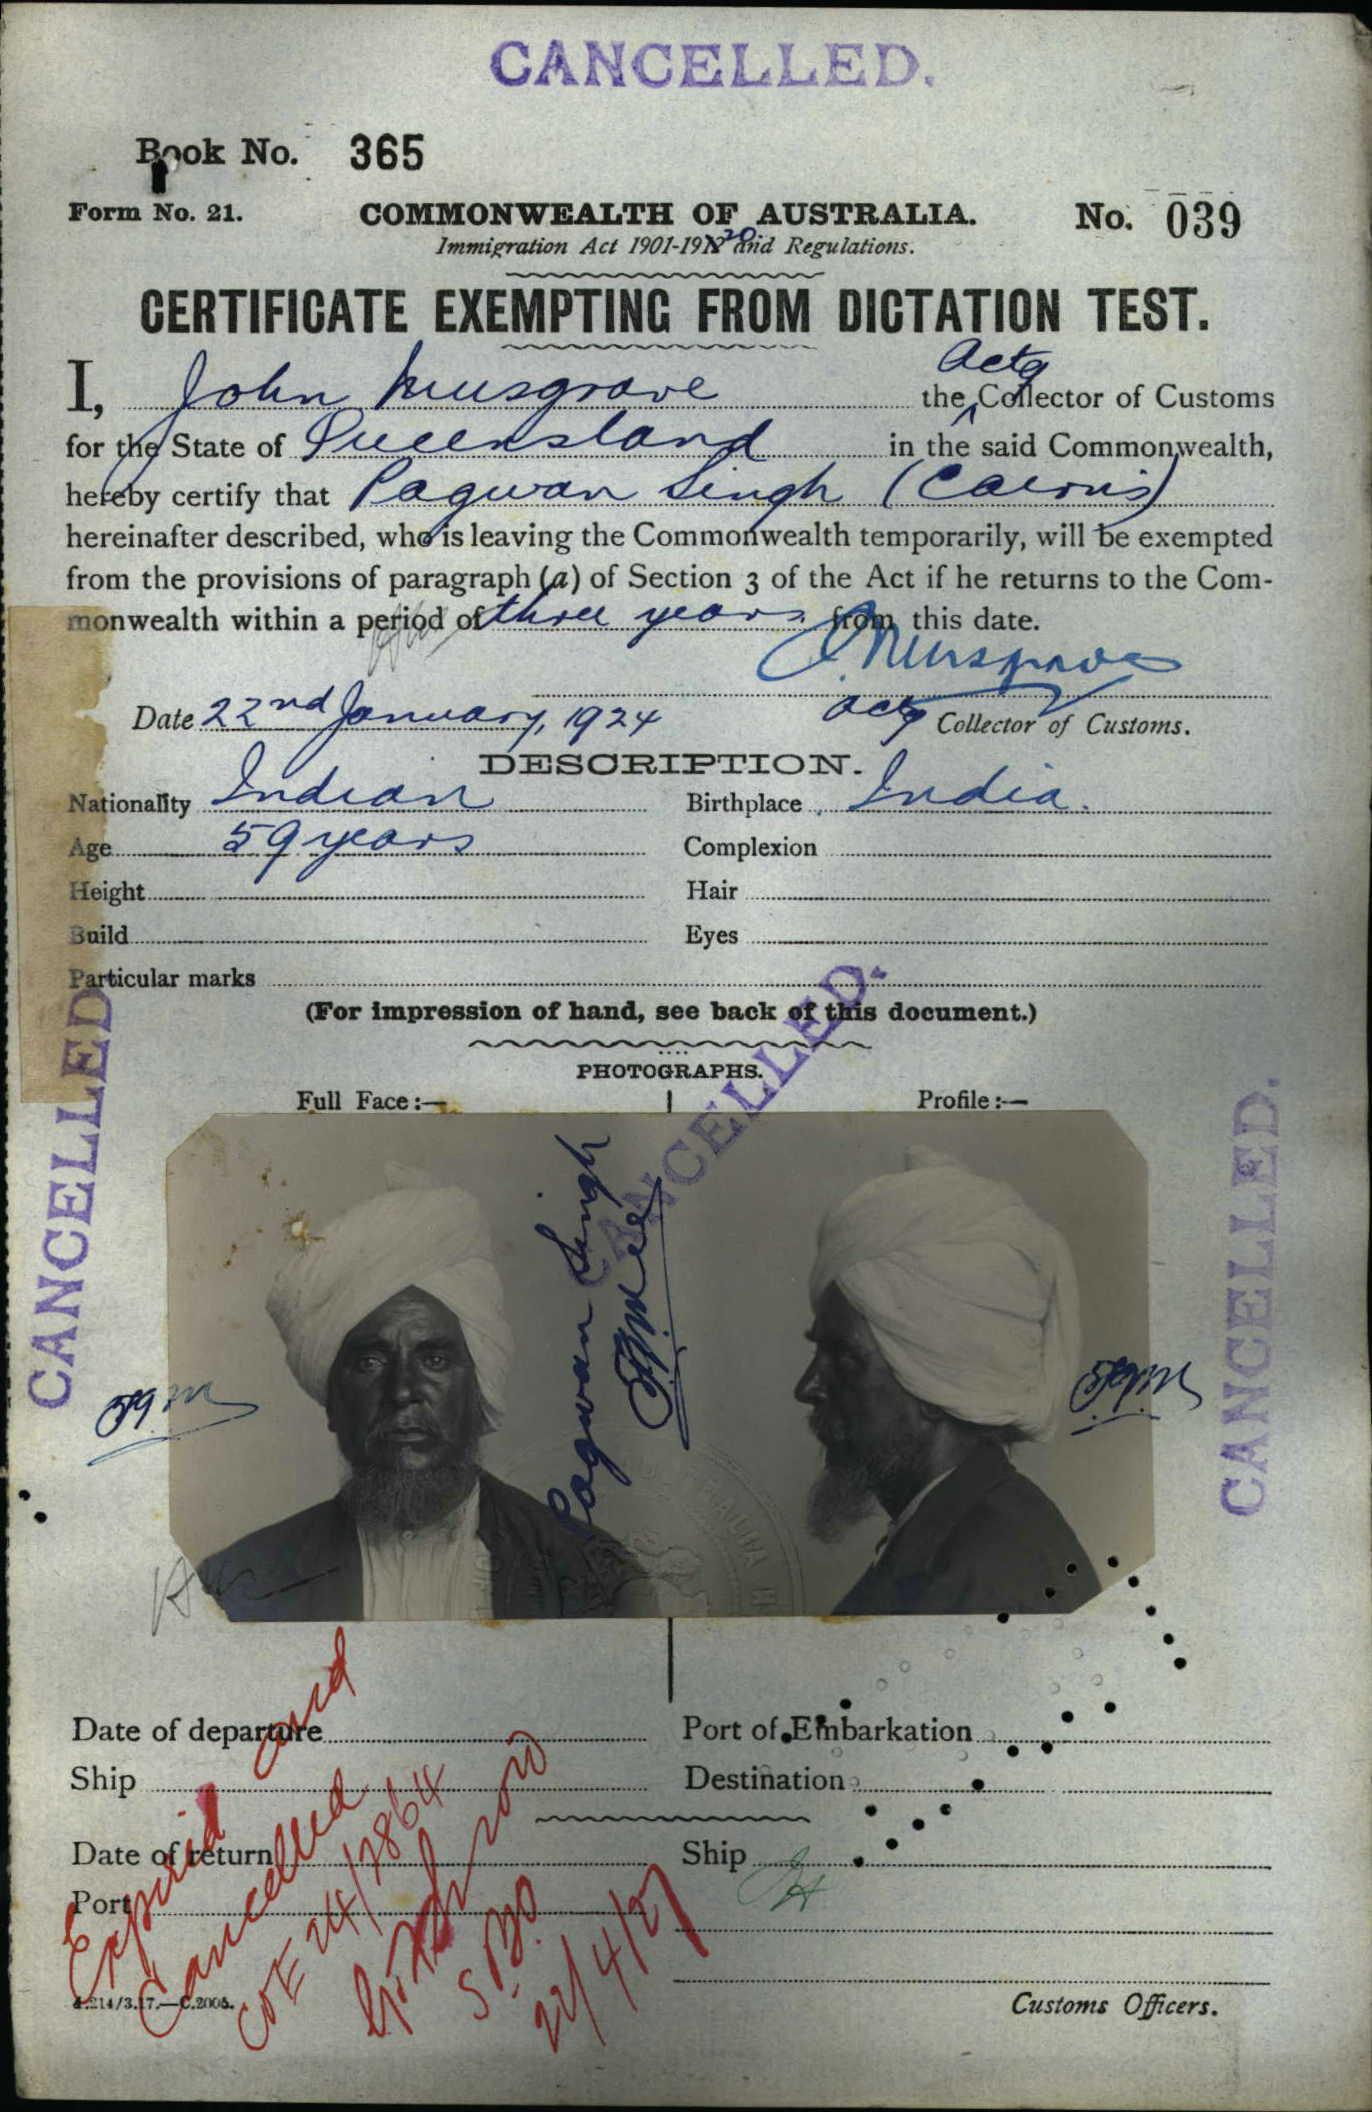 CANCELLED.
Book No. 365
Form No. 21. COMMONWEALTH OF AUSTRALIA. No. 039
Immigration Act 1901-1920 and Regulations.
CERTIFICATE EXEMPTING FROM DICTATION TEST.
Actg
I, John Musgrave the Collector of Customs
for the State of Queensland in the said Commonwealth,
hereby certify that Pagwan Singh (Cairns)
hereinafter described, who is leaving the Commonwealth temporarily, will be exempted
from the provisions of paragraph (a) of Section 3 of the Act if he returns to the Com-
monwealth within a period of three years from this date.
J Musgrave
Date 22nd January, 1924 Actg Collector of Customs.
DESCRIPTION.
Nationality Indian Birthplace India.
Age 59 years Complexion
Height Hair
Build Eyes
Particular marks
(For impression of hand, see back of this document.)
PHOTOGRAPHS.
Full Face:— Profile:—
CANCELLED
CANCELLED.
CANCELLED.
Pagwan Singh
Date of departure Port of Embarkation
Ship Destination
Date of return Ship
Port
Expired and
Cancelled
COE 24/7864
S.B.O.
22/4/27
4.214/3.17.—C.2005. Customs Officers.